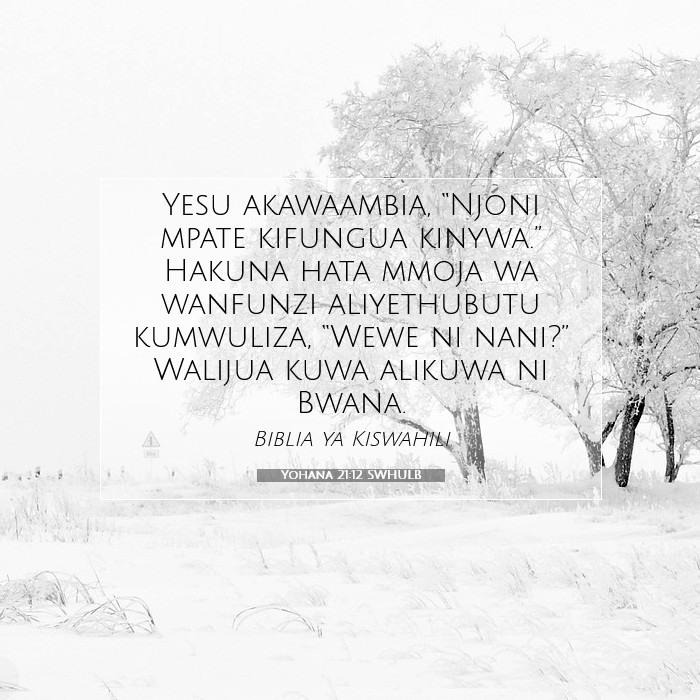 Yesu akawaambia, “Njoni
mpate kifungua kinywa.”
Hakuna hata mmoja wa
wanfunzi aliyethubutu
kumwuliza, “Wewe ni nani?”
Walijua kuwa alikuwa ni
Bwana.
Biblia ya Kiswahili
Yohana 21:12 SWHULB